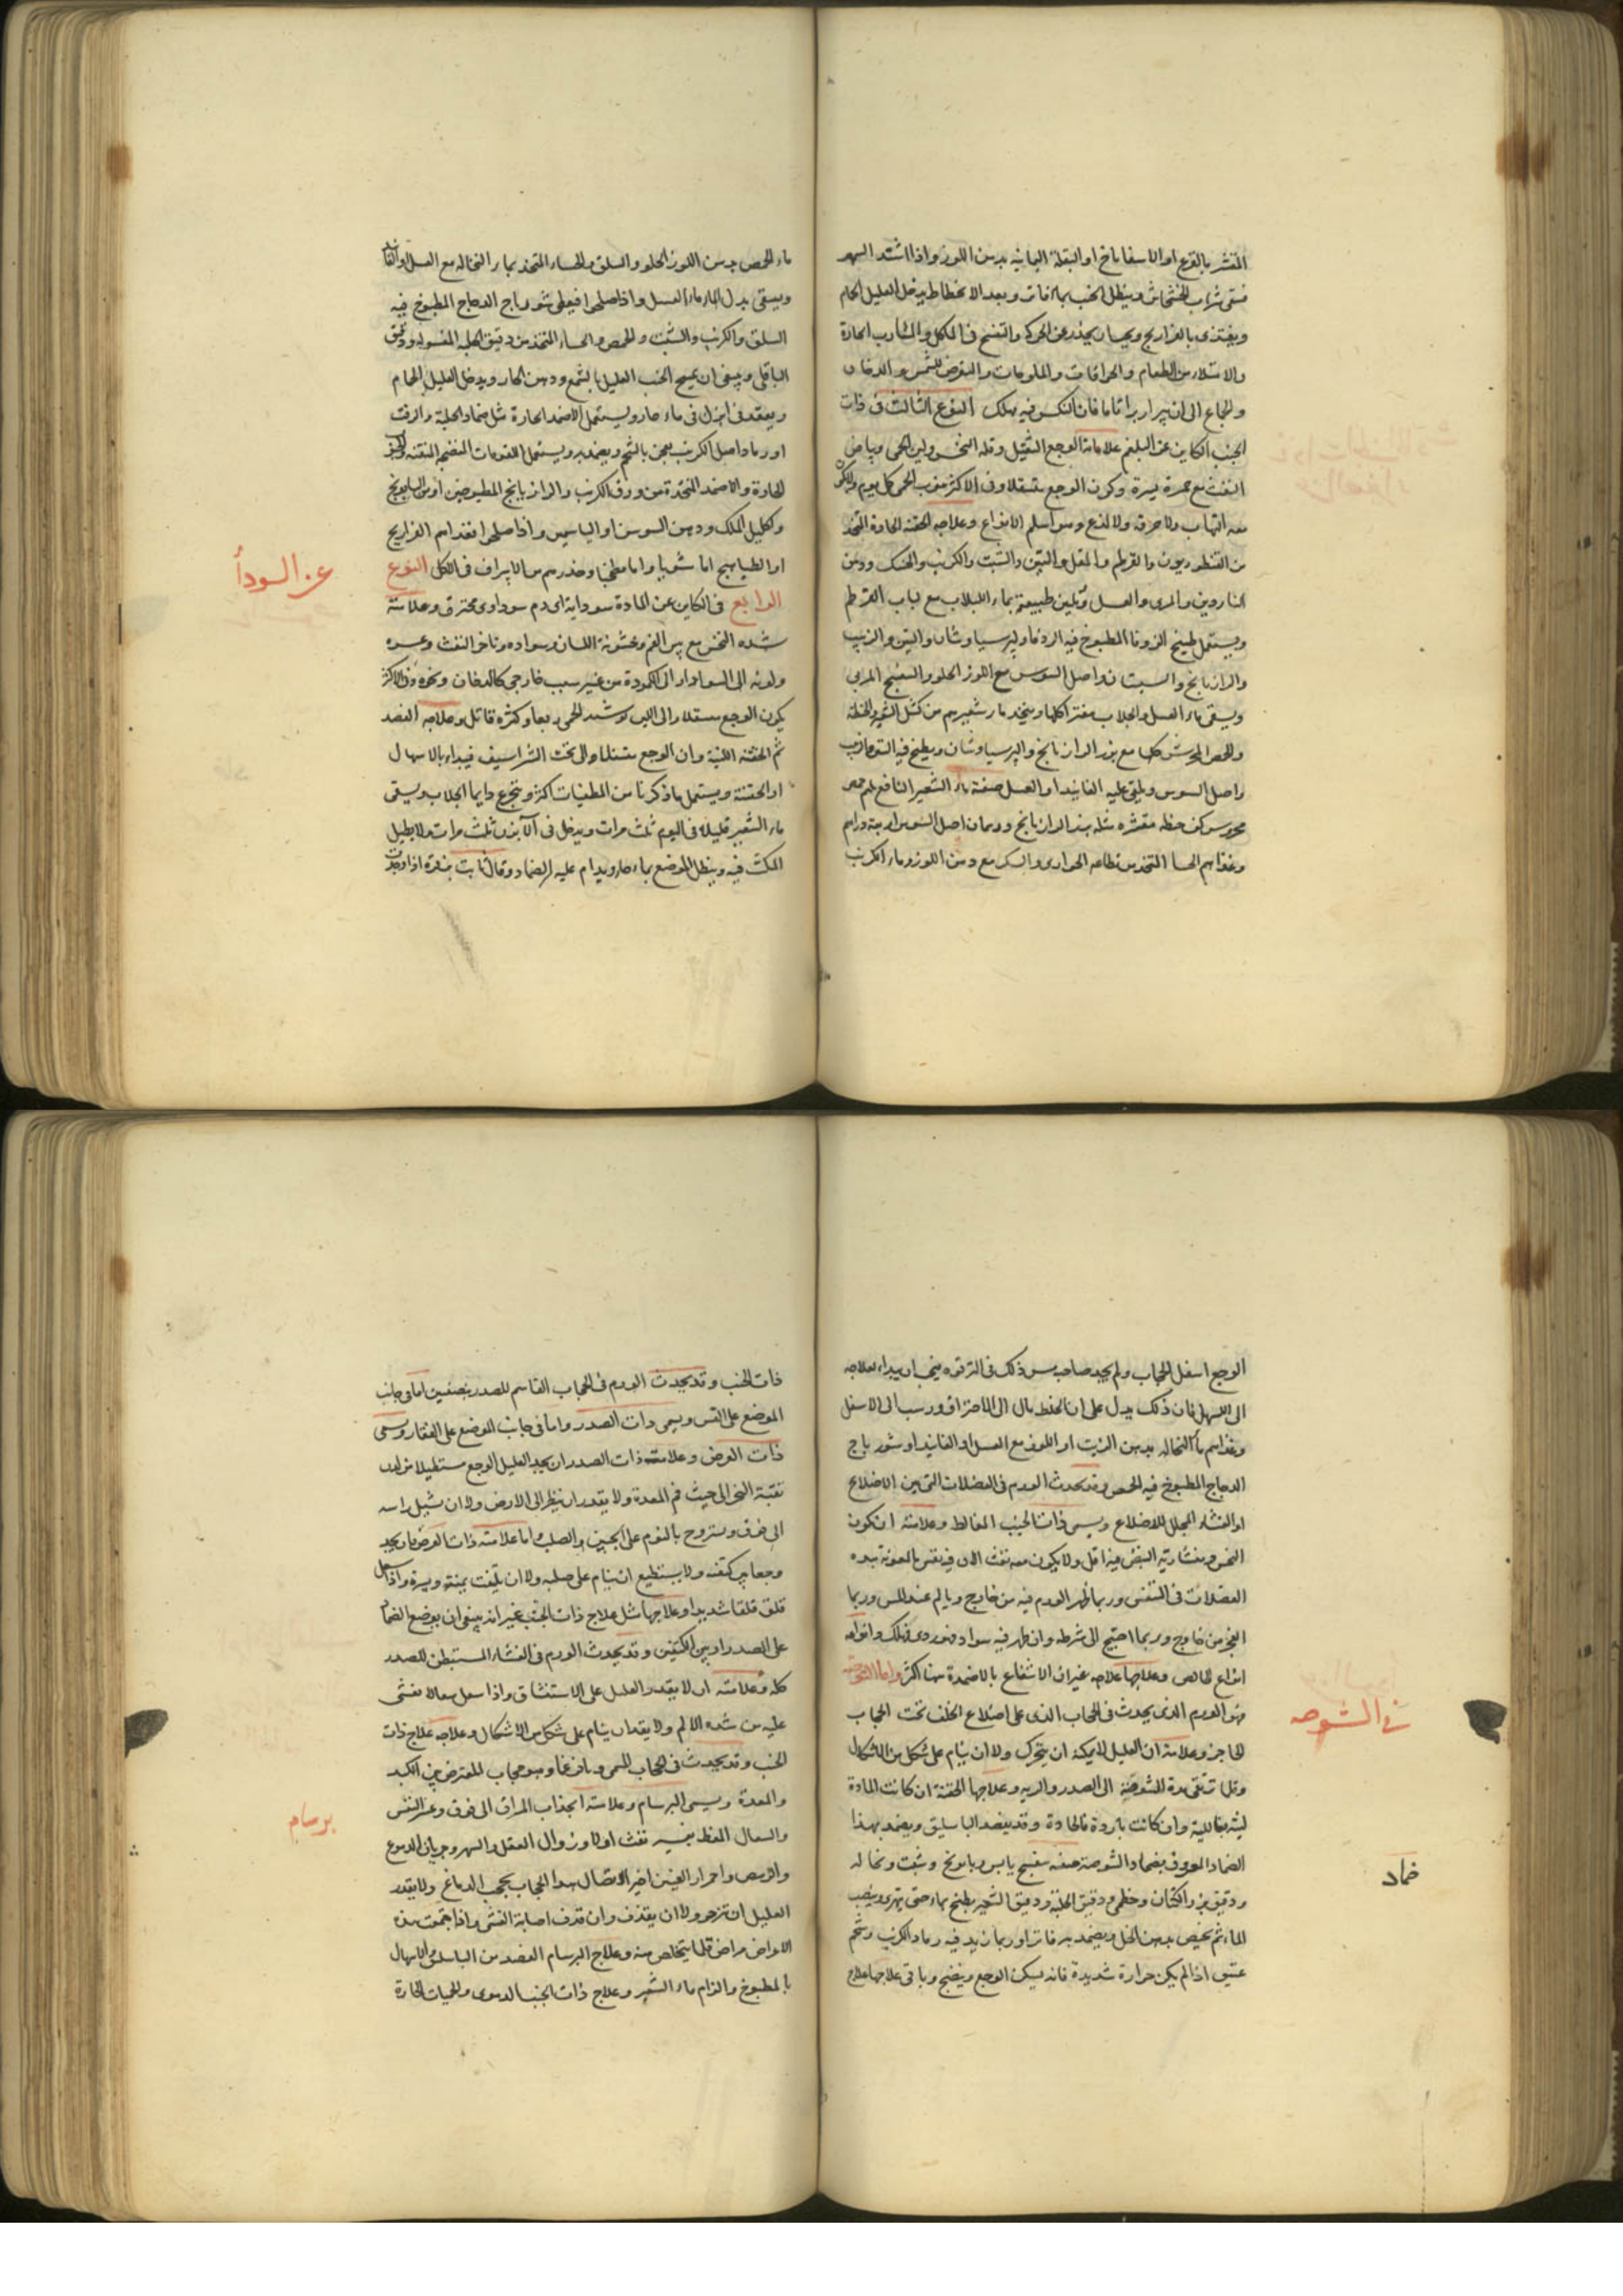 المقشر بالقرع او الاسفاناخ او البقلة اليمانيه بدهن اللوز واذا اشتد السهر
فيسقى شراب الخشخاش وينطل الجنب بماء فاتر وبعد الانحطاط يدخل العليل الحمام
ويغتذى بالفراريج ويجب ان يحذر عن الحركة والتفسح فى الماكل والمشارب الحارة
والامتلاء من الطعام والحرافات والملوحات والتعرض للشمس والدخان
والجماع الى ان يبرا برا تاما فان النكس فيه مهلك النوع الثالث فى ذات
الجنب الكاين عن البلغم علاماته الوجع الثقيل وقلة النخس ولين الحمى وبياض
النفث مع حمرة يسيرة وكون الوجع متسفلا وفى الاكثر تنوب الحمى كل يوم ولا يكون
معه التهاب ولا حرقة ولا لذع وهو اسلم الانواع وعلاجه الحقنة الحادة المتخذة
من القنطوريون والقرطم والمقل والتين والشبت والكرنب والحسك ودهن
الناردين والمرى والعسل وتليين طبيعته بماء اللبلاب مع لباب القرطم
ويستعمل طبيخ الزوفا المطبوخ فيه الزوفا وبرسياوشان والتين والزبيب
والرازيانج والسبستان واصل السوس مع اللوز الحلو والبنفسج المربى
ويسقى ماء العسل والجلاب مفترا كلها ويتخذ ماء شعيرهم من كشك الشعير والحنطة
والحمص المجرش كلها مع بزر الرازيانج والبرسياوشان ويطبخ فيه
واصل السوس ويلقى عليه الفانيد او العسل صفة ماء الشعير النافع لهم حمص
مجروش كف حنطه مقشره مثله بزر الرازيانج درهمان اصل السوس اربعة دراهم
وغذاهم الحسا المتخذ من الحوارى والسكر مع دهن اللوز وماء الكرنب
ماء الحمص بدهن اللوز الحلو والسلق والحساء المتخذ بماء النخاله مع العسل والفانيد
ويسقى بدل الماء ماء العسل واذا صلحوا فيعطى شورباج الدجاج المطبوخ فيه
السلق والكرنب والشبت والحمص والحساء المتخذ من دقيق الحلبه المغسوله ودقيق
الباقلى وينبغى ان يمسح الجنب العليل بالشمع ودهن الحار ويدخل العليل الحمام
ويقعد فى ابزن فى ماء حار ويستعمل الاضمد الحارة مثل ضماد الحلبة والزفت
او رماد اصل الكرنب يعجن بالشحم ويضمد به ويستعمل اللعوقات المنضجه المنقيه
الحارة والاضمد المتخذة من ورق الكرنب والرازيانج المطبوخين او من البابونج
واكليل الملك ودهن السوسن او الياسمين واذا صلحوا فغذاهم الفراريج
او الطياهيج اما شويا واما مطجنا وحذرهم من الاسراف فى الاكل النوع
الرابع فى الكاين عن المادة سوداية اى دم سوداوى محترق وعلامته
شده النخس مع يبس الفم وخشونة اللسان وسواده وتاخر النفث وعسره
ولونه الى السواد او الى الكمودة من غير سبب خارجى كالدخان ونحوه وفى الاكثر
يكون الوجع متسفلا والى اللين شده الحمى ربعا وكثره قاتل وعلاجه الفصد
ثم الحقنه اللينة وان الوجع متسفلا والى تحت الشراسيف فيبداء بالاسهال
او الحقنة ويستعمل ما ذكرنا من المطفيات اكثر ويتجرع دايما الجلاب ويسقى
ماء الشعير قليلا فى اليوم ثلث مرات ويدخل فى الابزن ثلث مرات ولا يطيل
المكث فيه وينطل الموضع بماء حار ويدام عليه الضماد وقال ثابت بن قرة اذا وجدت
عن السودأ
الوجع اسفل الحجاب ولم يجد صاحبه مس ذلك فى الترقوه فيجب ان يبداء بعلاجه
الى المسهل فان ذلك يدل على ان الخلط مال الى الاحتراق ورسب الى الاسفل
وغذاهم ماء النخاله بدهن الزيت او اللوز مع العسل او الفانيد او شورباج
الدجاج المطبوخ فيه الحمص وقد يحدث الورم فى العضلات التى بين الاضلاع
او الغشاء المجلل للاضلاع ويسمى ذات الجنب المغالط وعلامته ان يكون
النخس ومنشارية النبض فيه اقل ولا يكون معه نفث الا ان يضيق النفس بالمعونة هذه
العضلات فى التنفس وربما ظهر الورم فيه من خارج ويالم عند اللمس وربما
انفجر من خارج وربما احتيج الى شرطه وان ظهر فيه سواد فهو ردى مهلك وانواعه
انواع الخالص وعلاجها علاجه غير ان الانتفاع بالاضمدة هنا اكثر واما الشوصه
فهو الورم الذى يحدث فى الحجاب الذى على اضلاع الخلف تحت الحجاب
الحاجز وعلامته ان العليل لا يمكنه ان يتحرك ولا ان ينام على شكل من الاشكال
وقلما تنقى مدة الشوصة الى الصدر والريه وعلاجها الحقنة ان كانت المادة
لينة فباللينة وان كانت باردة فالحادة وقد يفصد الباسليق ويضمد بهذا
الضماد المعروف بضماد الشوصة صفته بنفسج يابس وبابونج وشبت ونخاله
ودقيق بزر الكتان وخطمى ودقيق الحلبة ودقيق الشعير يطبخ بماء حتى يتهرى ويصب
الماء ثم يخبص بدهن الخل ويضمد به فاترا وربما زيد فيه رماد الكرنب وشحم
عتيق اذا لم يكن حرارة شديدة فانه يسكن الوجع وينضج وباقى علاجها علاج
فى الشوصه
ضماد
ذات الجنب وقد يحدث الورم فى الحجاب القاسم للصدر بنصفين اما فى جانب
الموضع على القس ويسمى ذات الصدر واما فى جانب الموضع على الفقار ويسمى
ذات العرض وعلامته ذات الصدر ان يجد العليل الوجع مستطيلا من لدن
نقبة النحر الى حيث فم المعدة ولا يقدر ان ينظر الى الارض ولا ان يشيل راسه
الى فوق ويستروح بالنوم على الجنبين والصلب واما علامته ذات العرض فان يجد
وجعا بين كتفيه ولا يستطيع ان ينام على صلبه ولا ان يلتفت يمنة ويسرة واذا سعل
قلق قلقا شديدا وعلاجها مثل علاج ذات الجنب غير انه ينبغى ان يوضع الضماد
على الصدر او بين الكتفين وقد يحدث الورم فى الغشاء المستبطن للصدر
كله وعلامته ان لا يقدر العليل على الاستنشاق واذا سعل سعالا يغشى
عليه من شده الالم ولا يقدر ان ينام على شكل من الاشكال وعلاجه علاج ذات
الجنب وقد يحدث فى الحجاب المسمى ديافرغما وهو حجاب المعترض بين الكبد
والمعدة ويسمى البرسام وعلامته انجذاب المراق الى فوق وعسر النفس
والسعال بغير نفث اولا وزوال العقل والسهر وجريان الدموع
واحمرار العينين اخيرا لاتصال هذا الحجاب بحجب الدماغ ولا يقدر
العليل ان يتزحر ولا ان يقذف وان قذف اصابه الغشى واذا اجتمعت هذه
الاعراض فى مرض قلما يتخلص منه وعلاج البرسام الفصد من الباسليق والاسهال
بالمطبوخ والزام ماء الشعير وعلاج ذات الجنب الدموى والحميات الحارة
برسام